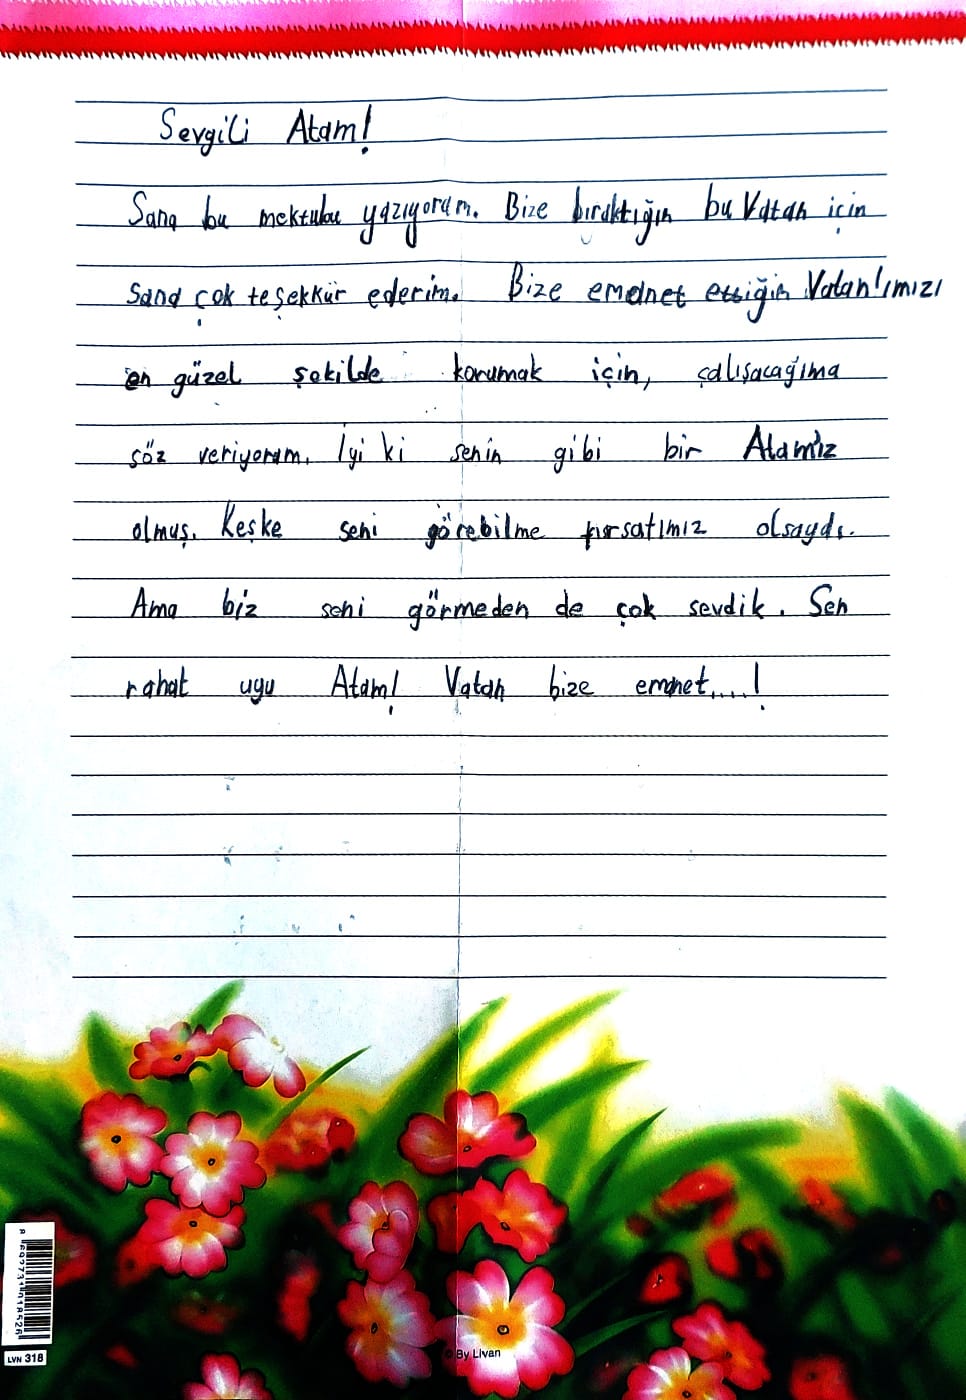 Sevgili Atam!
Sana bu mektubu yazıyorum. Bize bıraktığın bu Vatan için
Sana çok teşekkür ederim. Bize emanet ettiğin Vatanımızı
en güzel şekilde korumak için, çalışacağıma
söz veriyorum. İyi ki senin gibi bir Atamız
olmuş. Keşke seni görebilme fırsatımız olsaydı.
Ama biz seni görmeden de çok sevdik. Sen
rahat uyu Atam! Vatan bize emanet....!
By Livan
LVN 318